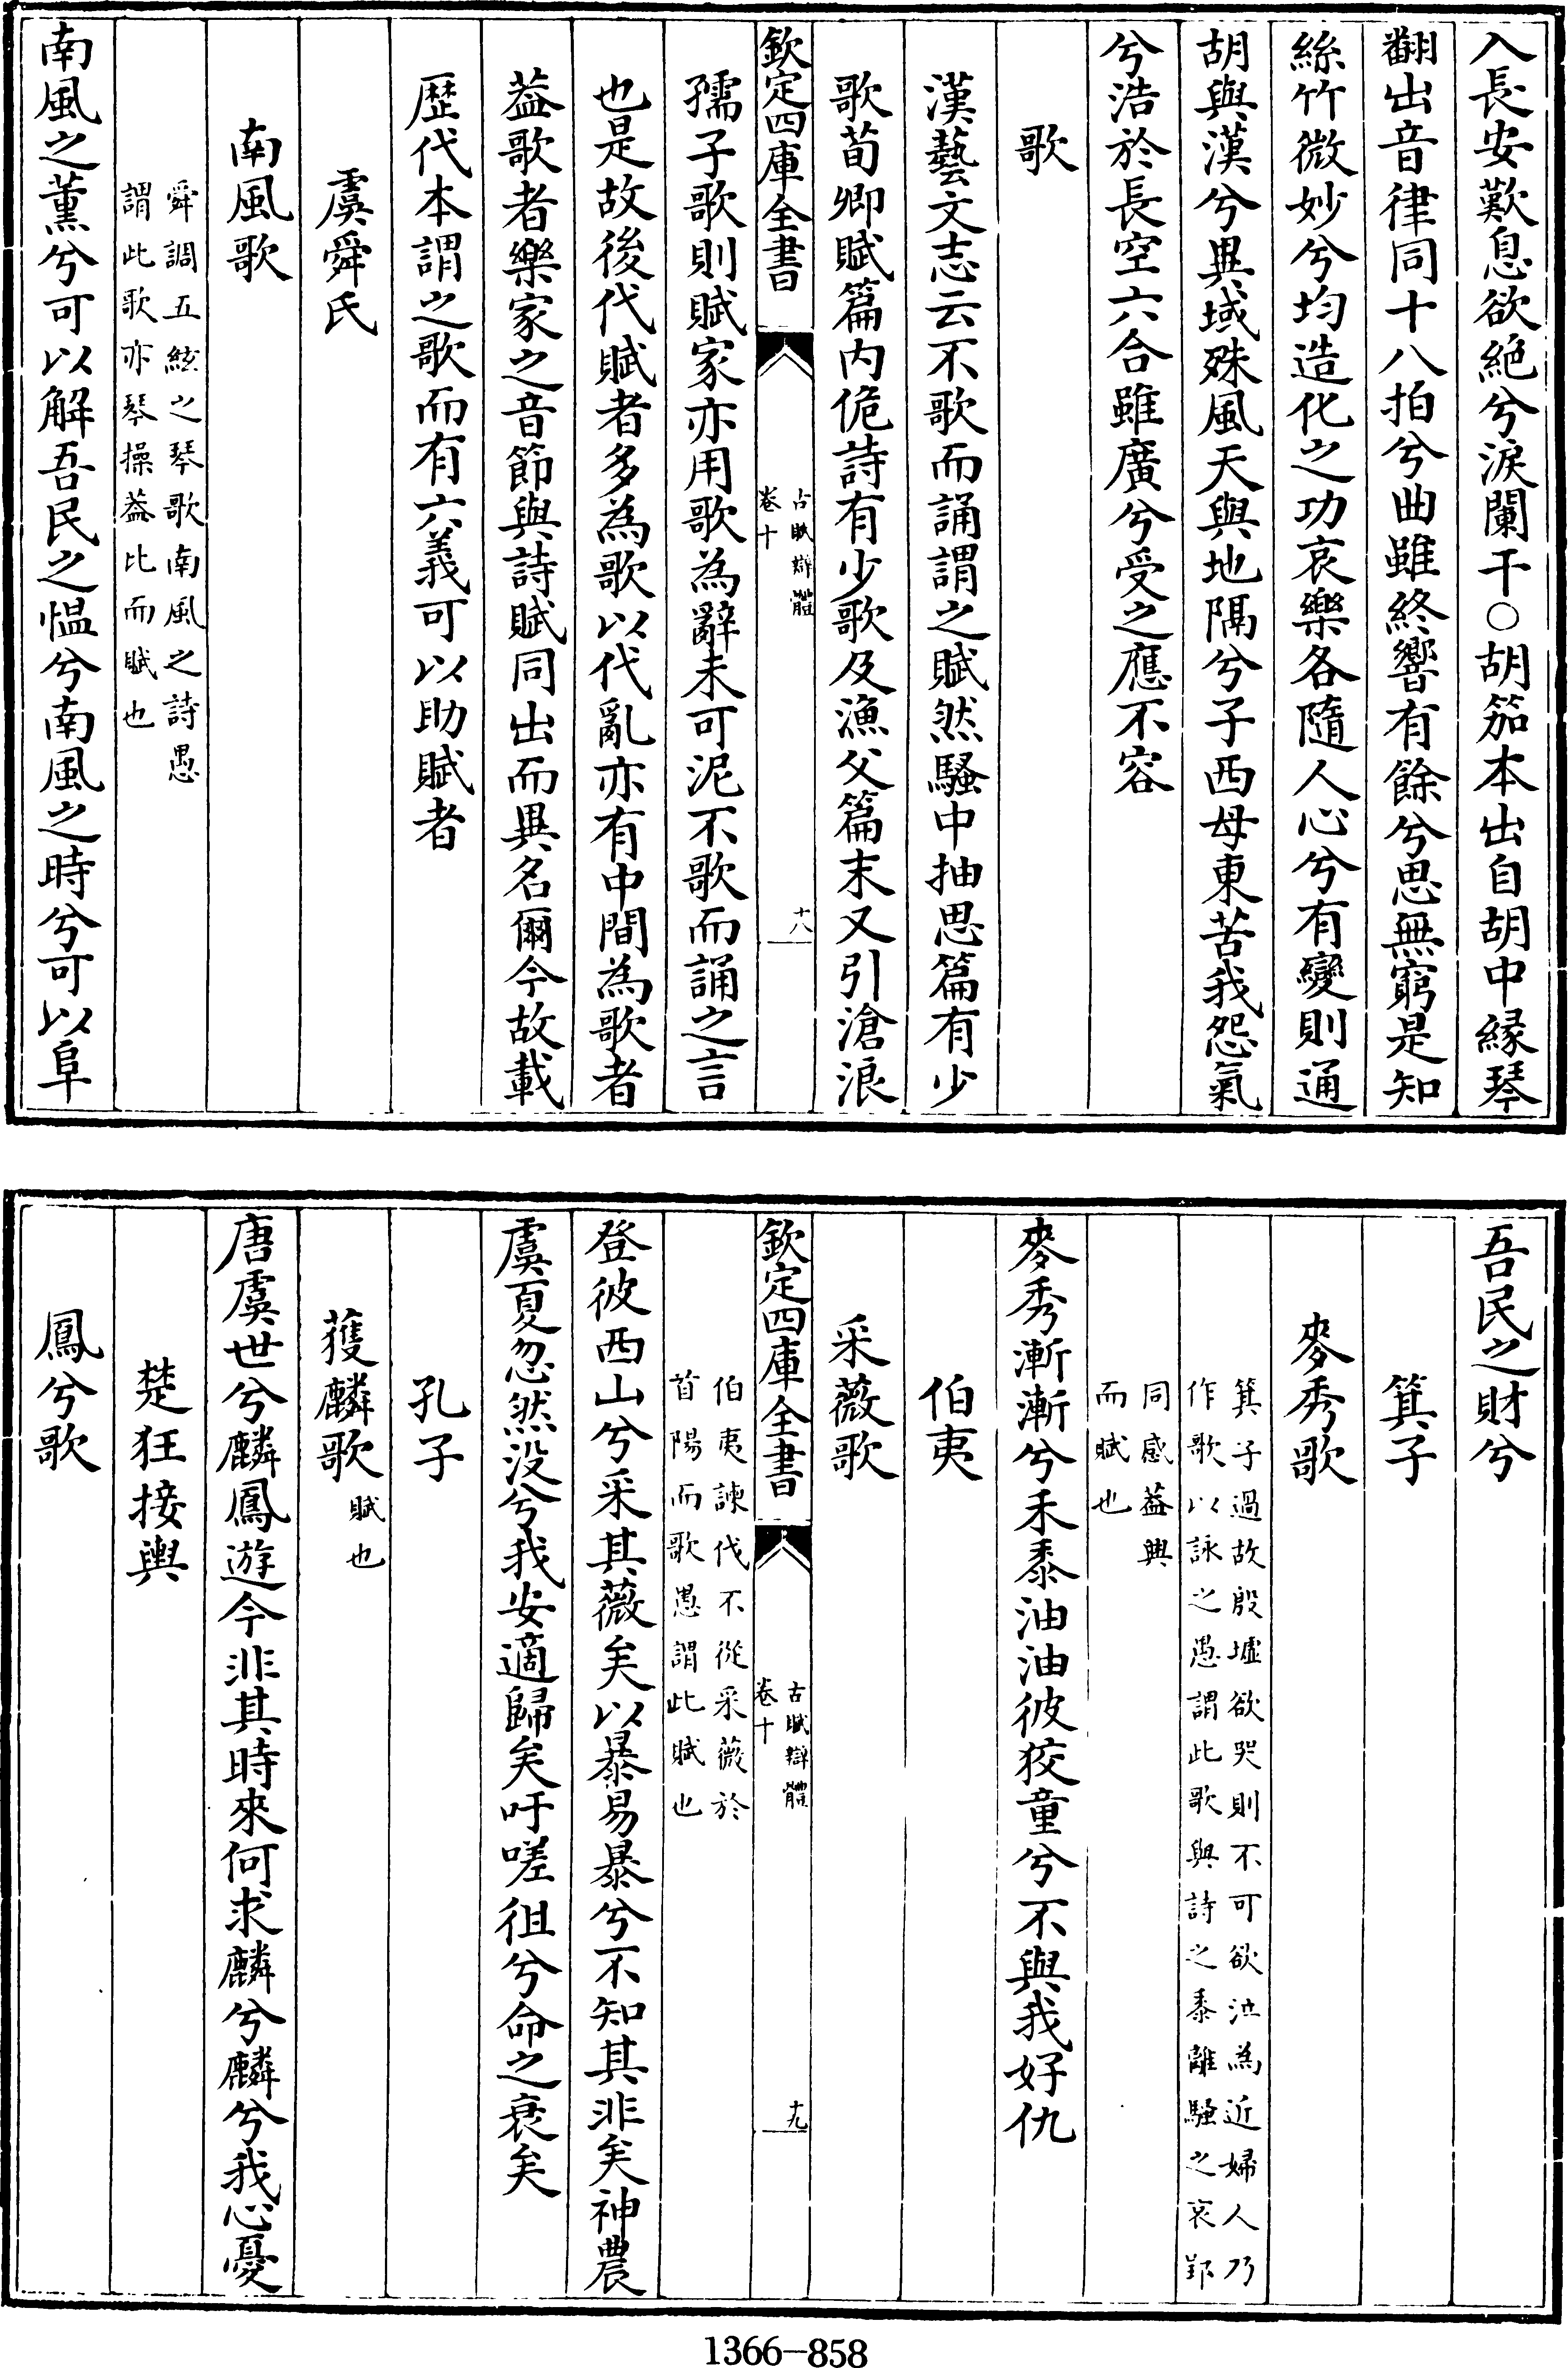 入長安歎息欲絶兮淚闌干○胡笳本出自胡中緣琴
翻出音律同十八拍兮曲雖終響有餘兮思無窮是知
絲竹微妙兮均造化之功哀樂各隨人心兮有變則通
胡與漢兮異域殊風天與地隔兮子西母東苦我怨氣
兮浩於長空六合雖廣兮受之應不容
歌
漢藝文志云不歌而誦謂之賦然騷中抽思篇有少
歌荀卿賦篇内佹詩有少歌及漁父篇末又引滄浪
欽定四庫全書
古賦辯體
卷十
十八
孺子歌則賦家亦用歌為辭未可泥不歌而誦之言
也是故後代賦者多為歌以代亂亦有中間為歌者
葢歌者樂家之音節與詩賦同出而異名爾今故載
歴代本謂之歌而有六義可以助賦者
虞舜氏
南風歌
舜調五絃之琴歌南風之詩愚
謂此歌亦琴操葢比而賦也
南風之薰兮可以解吾民之愠兮南風之時兮可以阜
吾民之財兮
箕子
麥秀歌
箕子過故殷墟欲哭則不可欲泣為近婦人乃
作歌以詠之愚謂此歌與詩之黍離騷之哀郢
同感葢興
而賦也
麥秀漸漸兮禾黍油油彼狡童兮不與我好仇
伯夷
采薇歌
欽定四庫全書
古賦辯體
卷十
十九
伯夷諫伐不從采薇於
首陽而歌愚謂此賦也
登彼西山兮采其薇矣以暴易暴兮不知其非矣神農
虞夏忽然没兮我安適歸矣吁嗟徂兮命之衰矣
孔子
獲麟歌賦也
唐虞世兮麟鳳遊今非其時來何求麟兮麟兮我心憂
楚狂接輿
鳳兮歌
1366-858